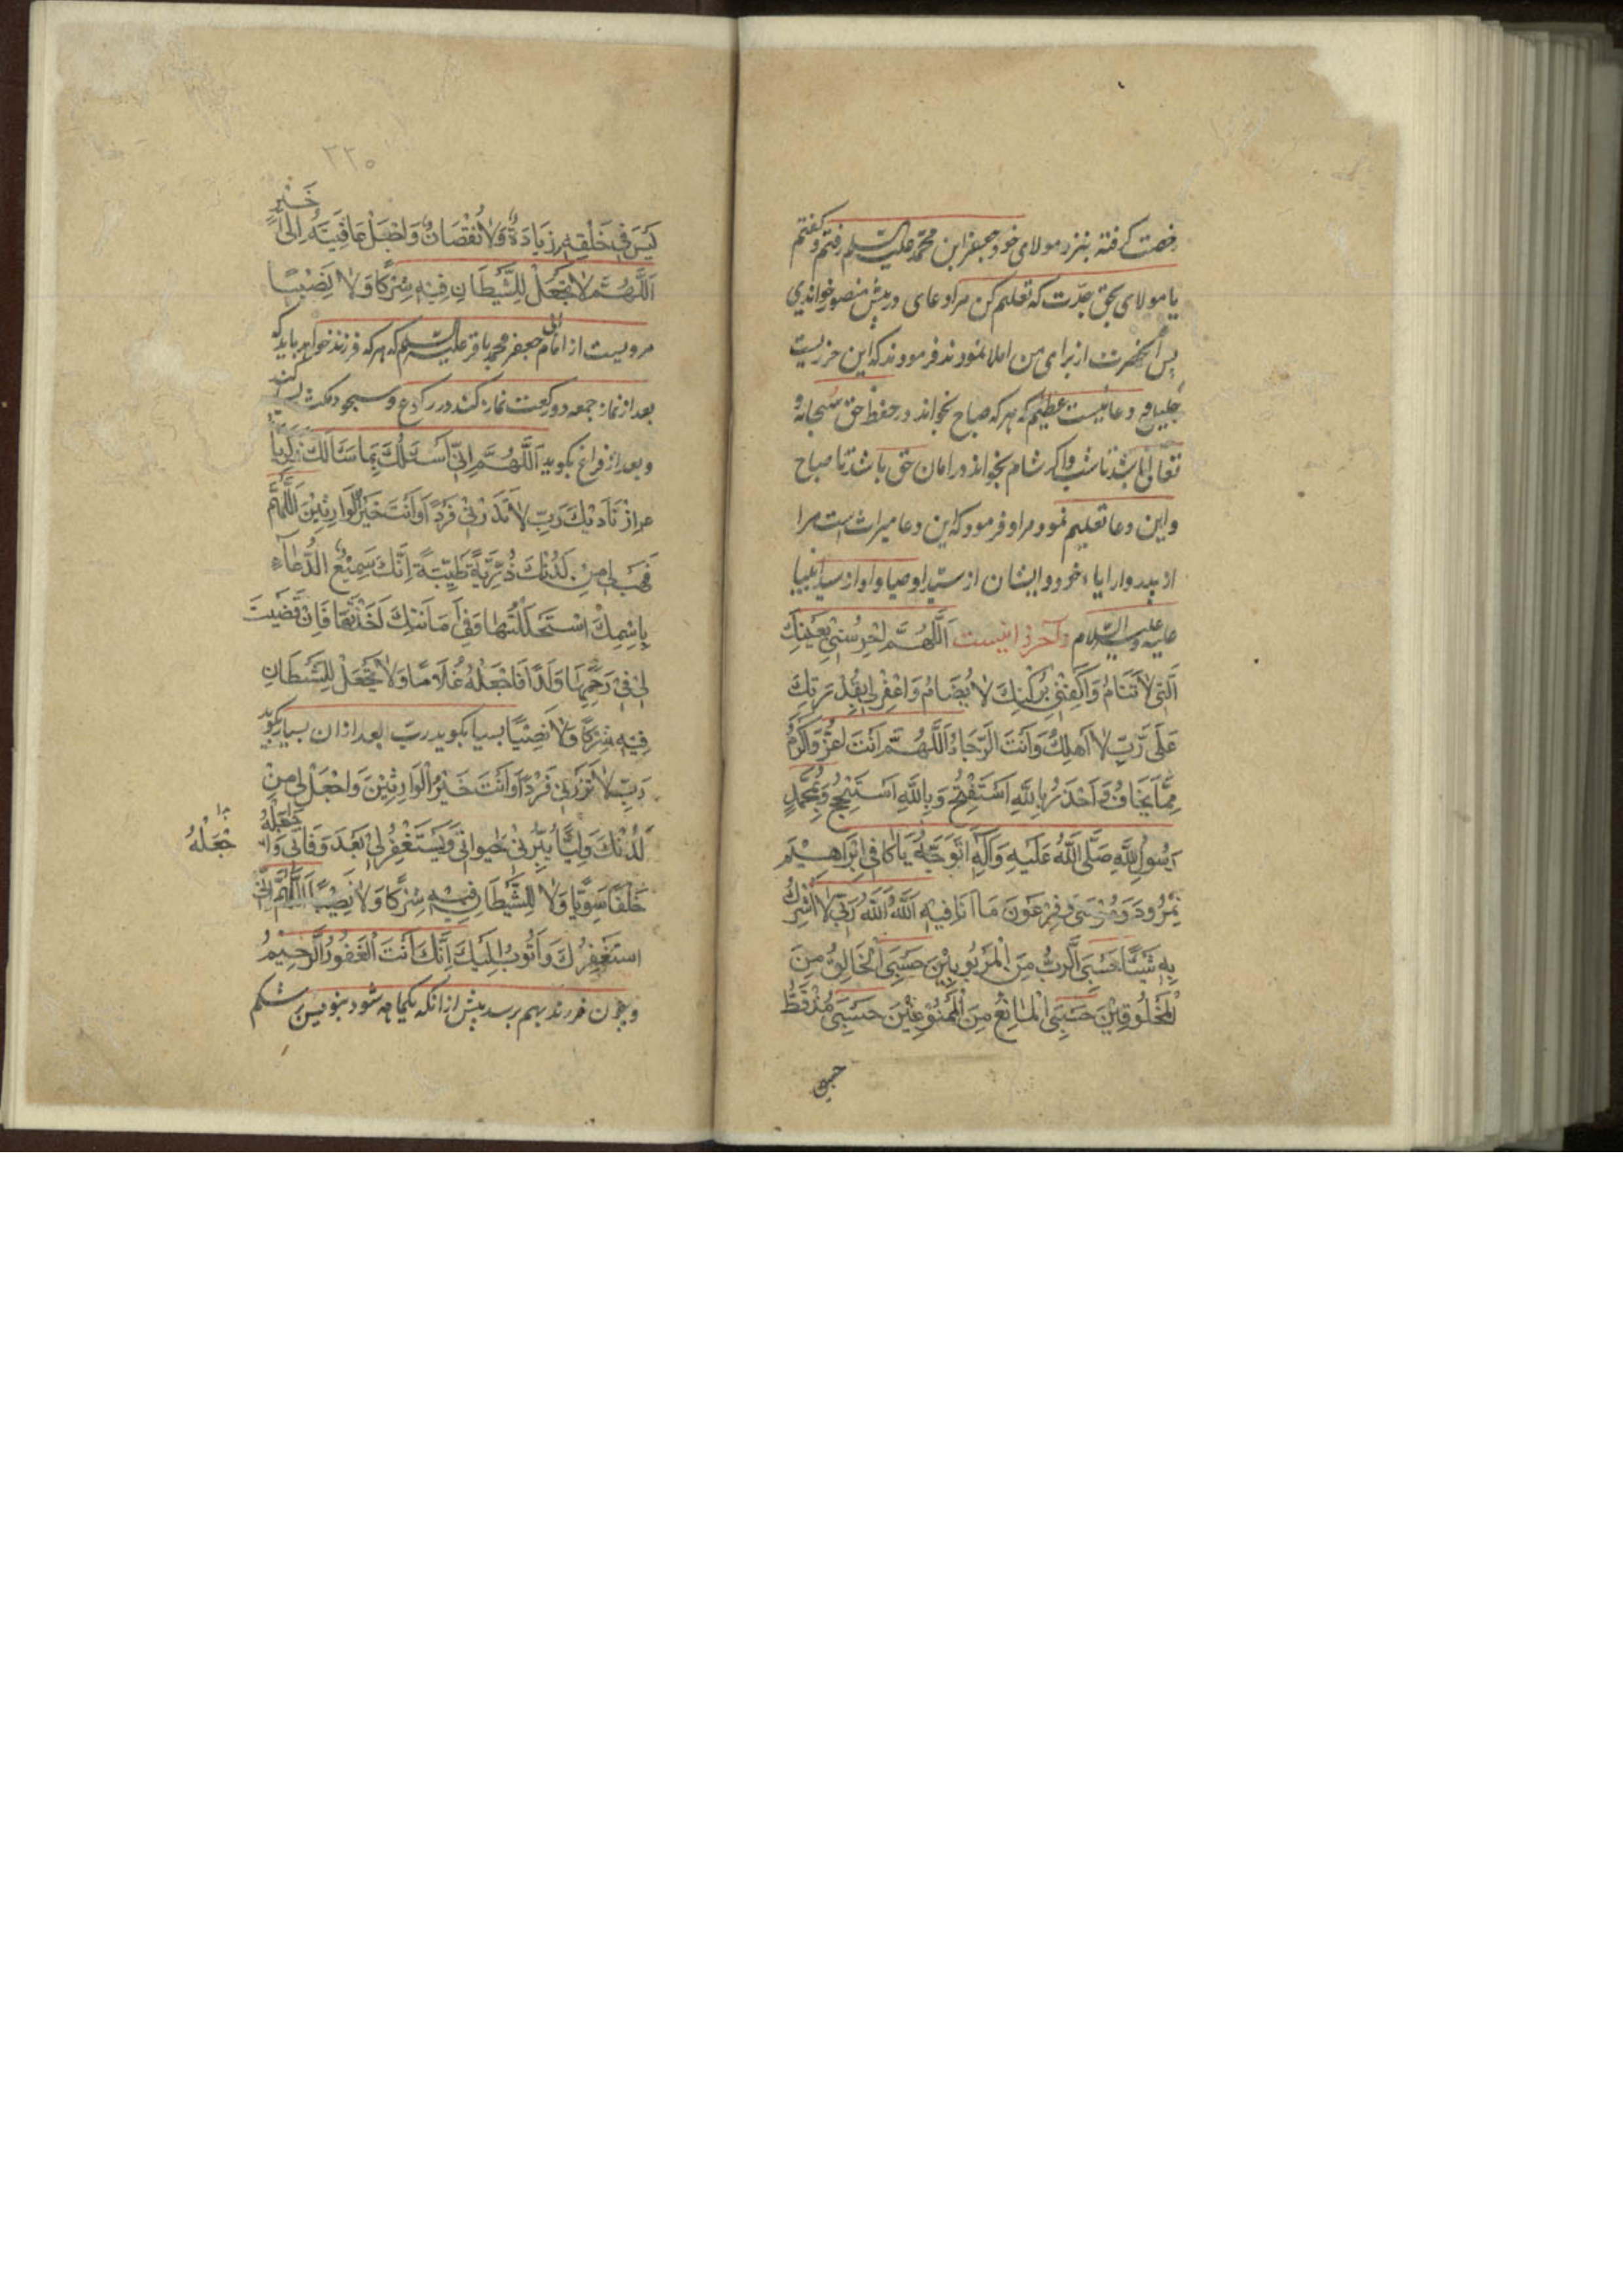 رخصت گرفته بنزد مولای خود جعفر ابن محمد علیه السلم رفتم و گفتم
یا مولای بحق جدت که تعلیم کن مرا دعای در پیش منصور خواندی
پس آنحضرت از برای من املا نمودند فرمودند که این حرزیست
جلیل و دعائیست عظیم که هر که صباح بخواند در حفظ حق سبحانه و
تعالی باشد تا شب و اگر شام بخواند در امان حق باشد تا صباح
و این دعا تعلیم نمود مرا و فرمود که این دعا میراث است مرا
از پدر و ایشان از سید اوصیا و او از سید انبیا
علیه و علیهم السلام و آخر آن اینست اَللّهُمَّ احْرُسْنی بِعَیْنِكَ
الَّتی لاتَنَامُ وَاكْنِفْنی بِرُكْنِكَ لا یُضَامُ وَاغْفِرْلی بِقُدْرَتِكَ
عَلَیَّ رَبِّ لا اَهْلِكُ وَاَنْتَ الرَّجَاءُ اَللّهُمَّ اَنْتَ اَعَزُّ وَاَكْرَمُ
مِمَّا یَخَافُ وَاَحْذَرُ بِاللّهِ اَسْتَفْتِحُ وَبِاللّهِ اَسْتَنْجِحُ وَبِمُحَمَّدٍ
رَسُولِ اللّهِ صَلَّی اللّهُ عَلَیْهِ وَآلِهِ اَتَوَجَّهُ یَا كَافِی اِبْرَاهِیْمَ
نَمْرُودَ وَمُوْسَی فِرْعَوْنَ مَا اَنَا فِیهِ اَللّهُ اَللّهُ رَبّی لا اُشْرِكُ
بِهِ شَیْئًا حَسْبِیَ الرَّبُّ مِنَ الْمَرْبُوبِیْنَ حَسْبِیَ الْخَالِقُ مِنَ
الْمَخْلُوقِیْنَ حَسْبِیَ الْمَانِعُ مِنَ الْمَمْنُوعِیْنَ حَسْبِی مُنْذُ قَطُّ
حسبی
۲۲۵
خَیْرٍ
لَیْسَ فِی خَلْقِهِ زِیَادَةٌ وَلا نُقْصَانٌ وَاجْعَلْ عَاقِبَتَهُ اِلَی
اَللّهُمَّ لا تَجْعَلْ لِلشَّیْطَانِ فِیْهِ شِرْكًا وَلا نَصِیْبًا
مرویست از امام جعفر محمد باقر علیه السلم که هر که فرزند خواهد باید که
بعد از نماز جمعه دو رکعت نماز کند در رکوع و سجود مکث بسی کند
و بعد از فراغ بگوید اَللّهُمَّ اِنِّی اَسْئَلُكَ بِمَا سَأَلَكَ زَكَرِیَّا
اِذْ نَادیكَ رَبِّ لا تَذَرْنِی فَرْدًا وَاَنْتَ خَیْرُ الْوَارِثِیْنَ اَللّهُمَّ
فَهَبْ لِی مِنْ لَدُنْكَ ذُرِّیَّةً طَیِّبَةً اِنَّكَ سَمِیْعُ الدُّعَآءِ
بِاسْمِكَ اسْتَحْلَلْتُهَا وَفِی اَمَانَتِكَ اَخَذْتُهَا فَاِنْ قَضَیْتَ
لِی فِی رَحِمِهَا وَلَدًا فَاجْعَلْهُ غُلامًا وَلا تَجْعَلْ لِلشَّیْطَانِ
فِیْهِ شِرْكًا وَلا نَصِیْبًا بسیا بگوید رب بعد از ان بسیار بگوید
رَبِّ لا تَذَرْنِی فَرْدًا وَاَنْتَ خَیْرُ الْوَارِثِیْنَ وَاجْعَلْ لِی مِنْ
لَدُنْكَ وَلِیًّا یَبَرُّنِی حَیوتِی وَیَسْتَغْفِرُ لِی بَعْدَ وَفَاتِی وَا جْعَلْهُ
جْعَلْهُ
خَلْفًا سَوِیًّا وَلا لِلشَّیْطَانِ فِیْهِ شِرْكًا وَلا نَصِیْبًا اَللّهُمَّ اِنِّی
اَسْتَغْفِرُكَ وَاَتُوبُ اِلَیْكَ اِنَّكَ اَنْتَ الْغَفُورُ الرَّحِیْمُ
و چون فرزند بهم رسد پیش از انکه یکماهه شود بنویس بر شکم